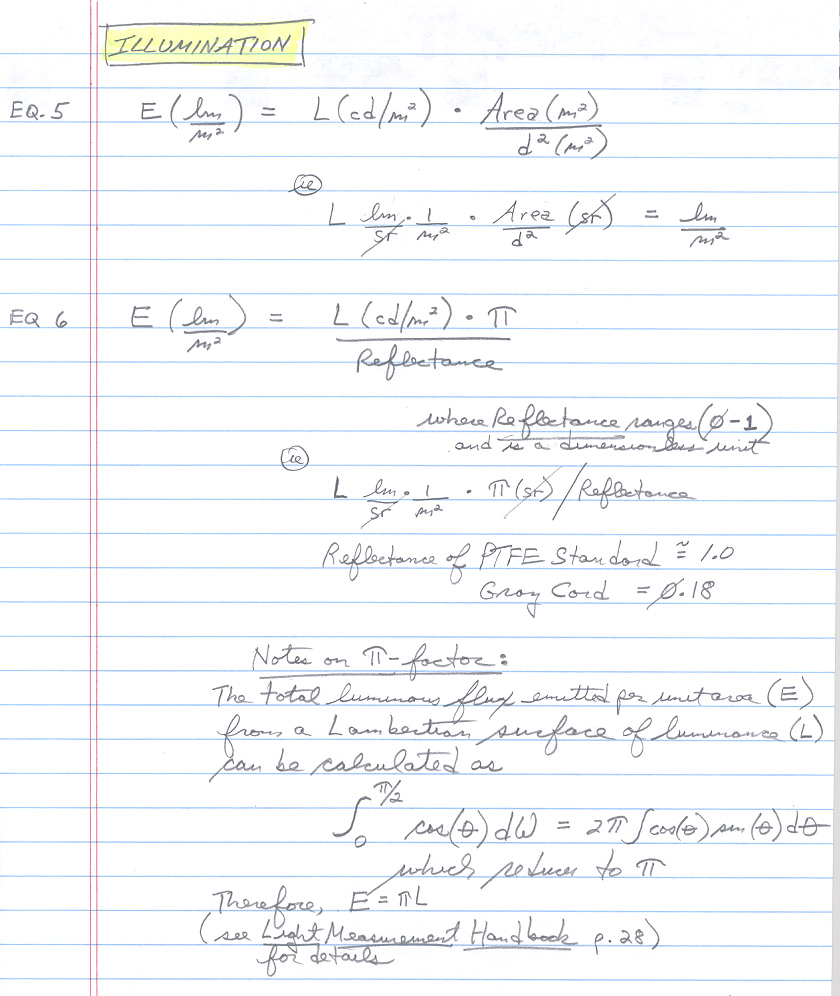 ILLUMINATION
EQ. 5 E (lm/m²) = L (cd/m²) · Area (m²) / d² (m²)
ie
L lm/sr · 1/m² · Area/d² (sr) = lm/m²
EQ 6 E (lm/m²) = L (cd/m²) · π / Reflectance
where Reflectance ranges (0-1)
and is a dimensionless unit
ie
L lm/sr · 1/m² · π (sr) / Reflectance
Reflectance of PTFE Standard ≅ 1.0
Gray Card = 0.18
Notes on π-factor:
The total luminous flux emitted per unit area (E)
from a Lambertian surface of luminance (L)
can be calculated as
∫₀^π/2 cos(θ) dω = 2π ∫ cos(θ) sin(θ) dθ
which reduces to π
Therefore, E = πL
(see Light Measurement Handbook p. 28)
for details